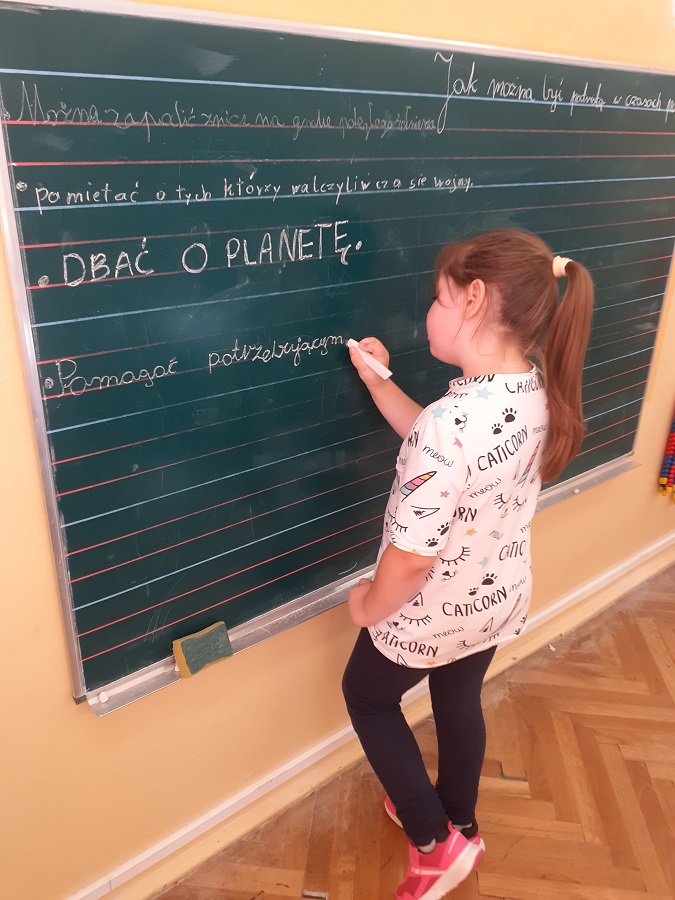 Jak można być patriotą w czasach po
Można zapalić znicz na grobie poległego żołnierza
• pomietać o tych którzy walczyli w cza sie wojny.
• DBAĆ O PLANETĘ.
• Pamagać potrzebującym
CORN
CATICORN
meow
meow
CATICORN
meow
CORN
meow
CATIC
meow
CATICORN
meow
CATICORN